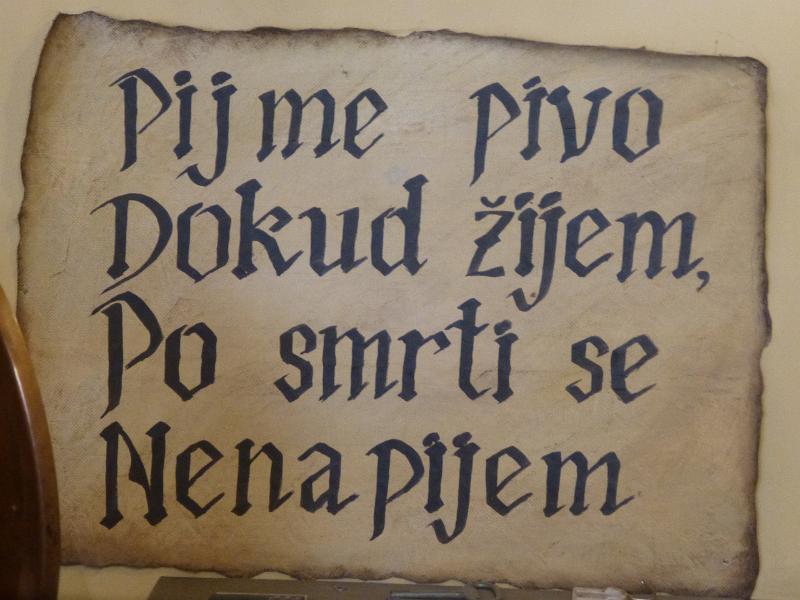 Pijme pivo
Dokud žijem,
Po smrti se
Nenapijem